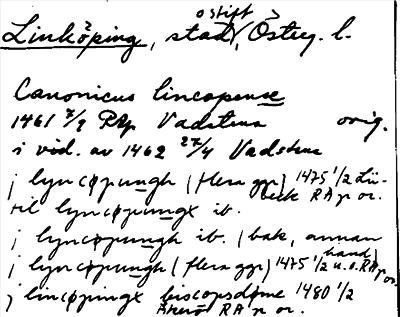 Linköping, stad, o stift, Österg. l.
Canonicus lincopense
1461 7/2 RAp Vadstena orig.
i vid. av 1462 27/4 Vadstena
j lyncøpungh (flera ggr) 1475 1/2 Lü-
beck RAp or.
til lyncøpungx ib.
j lyncøpungh ib. (bak, annan
hand)
j lyncøpungh (flera ggr) 1475 1/2 u.o. RAp or.
j lincöpingx biscopsdøme 1480 1/2
RAp or.